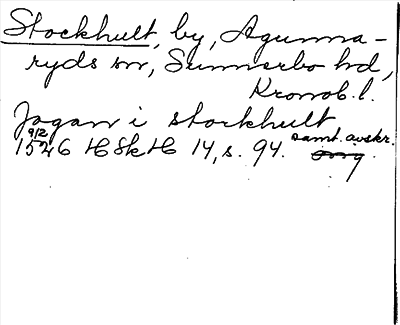 Stockhult, by, Agunna-
ryds sn, Sunnerbo hd,
Kronob. l.
Jogan i stockhult
9/2 samt. avskr.
1546 HSkH 14, s. 94. orig.